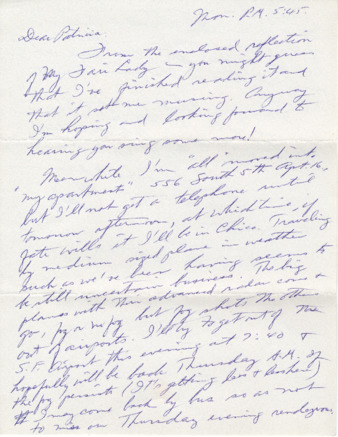 Mon. P.M. 5:45
Dear Patricia.
From the enclosed reflection
of My Fair Lady — you might guess
that I've finished reading it and
that it set me musing. Anyway
I'm hoping and looking forward to
hearing you sing some more!
Meanwhile I'm "all" moved into
"my apartment" 556 South 5th Apt 16,
but I'll not get a telephone until
tomorrow afternoon, at which time, if
fate wills it I'll be in Chico. Traveling
by medium sized plane in weather
such as we've been having seems to
be still uncertain business. The big
planes with their advanced radar come &
go, fog or no fog but fog shuts the others
out of airports. I'll try to get out of the
S.F. airport this evening at 7:40 &
hopefully will be back Thursday A.M. if
the fog permits (It's getting less & less)
I may come back by bus so as not
to miss our Thursday evening rendezvous